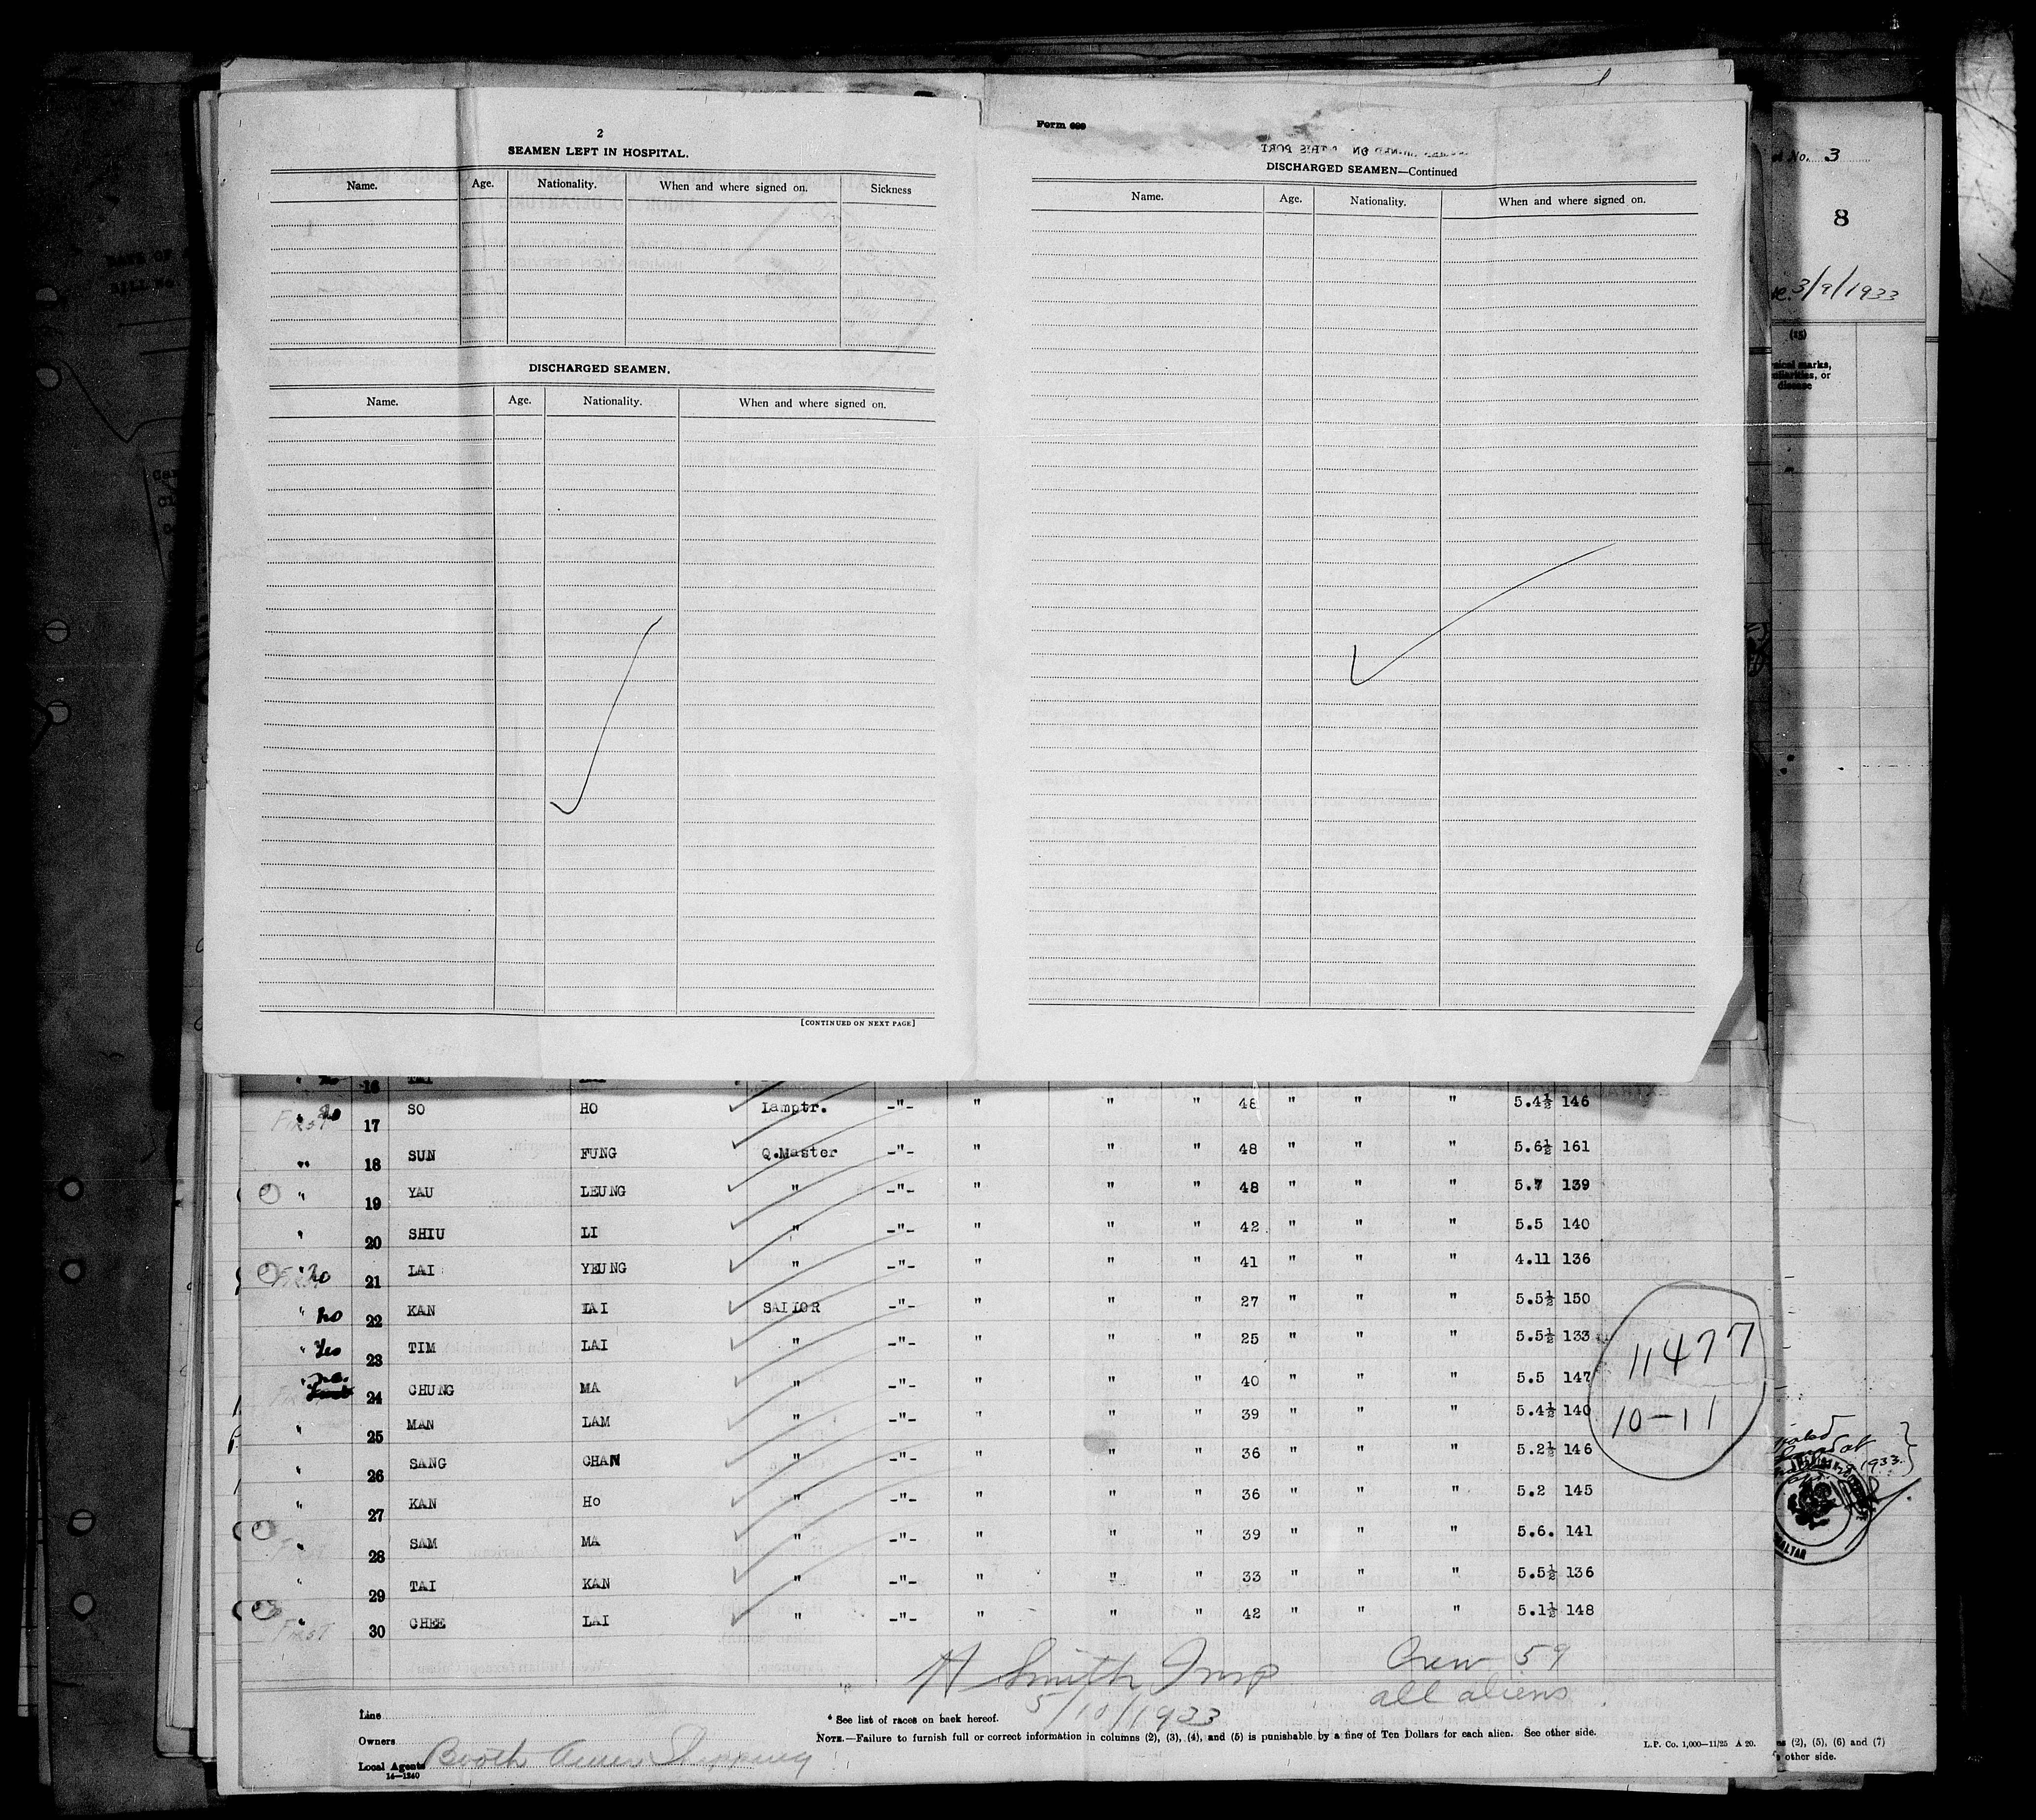 2
SEAMEN LEFT IN HOSPITAL.
Name. Age. Nationality. When and where signed on. Sickness
DISCHARGED SEAMEN.
Name. Age. Nationality. When and where signed on.
[CONTINUED ON NEXT PAGE]
Form 689
DISCHARGED SEAMEN—Continued
Name. Age. Nationality. When and where signed on.
No. 3
8
3/9/1933
(15)
marks,
or
disease
16
no First 17 SO HO Lamptr. -"- " " " 48 " " " 5.4½ 146
" 18 SUN FUNG Q.Master -"- " " " 48 " " " 5.6½ 161
" 19 YAU LEUNG " -"- " " " 48 " " " 5.7 139
" 20 SHIU LI " -"- " " " 42 " " " 5.5 140
" no First 21 LAI YEUNG " -"- " " " 41 " " " 4.11 136
" no 22 KAN LAI SAILOR -"- " " " 27 " " " 5.5½ 150
" Yes 23 TIM LAI " -"- " " " 25 " " " 5.5½ 133
" no. 24 CHUNG MA " -"- " " " 40 " " " 5.5 147
" 25 MAN LAM " -"- " " " 39 " " " 5.4½ 140
" 26 SANG CHAN " -"- " " " 36 " " " 5.2½ 146
" 27 KAN Ho " -"- " " " 36 " " " 5.2 145
" First 28 SAM MA " -"- " " " 39 " " " 5.6. 141
" 29 TAI KAN " -"- " " " 33 " " " 5.5½ 136
" First 30 CHEE LAI " -"- " " " 42 " " " 5.1½ 148
11477
10-11
1933.
H Smith Insp
5/10/1933
Crew 59
all aliens
Line
* See list of races on back hereof.
Owners
NOTE.—Failure to furnish full or correct information in columns (2), (3), (4), and (5) is punishable by a fine of Ten Dollars for each alien. See other side.
Local Agents Booth Amer Shipping
14—1240
L.P. Co. 1,000—11/25 A 20.
(2), (5), (6) and (7)
other side.